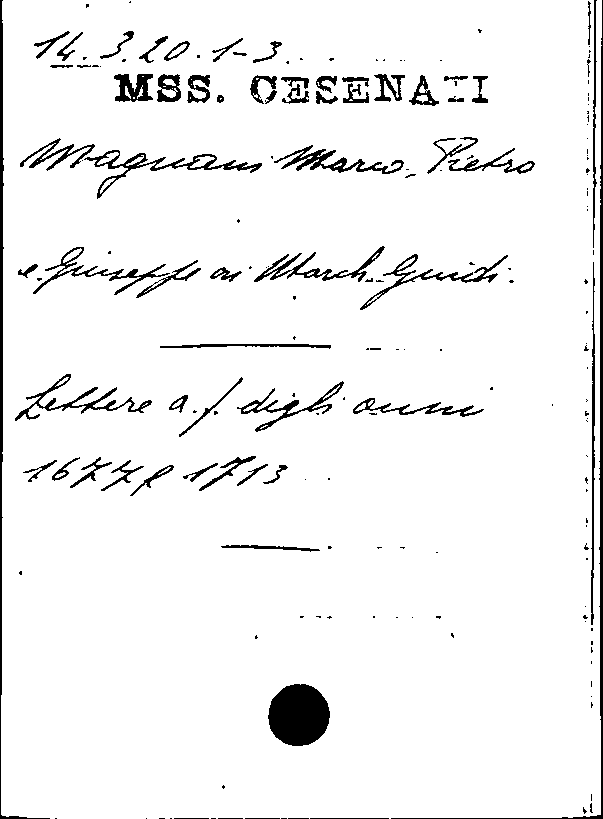 14.3.20.1-3
MSS. CESENATI
Magnani Marco, Pietro
e Giuseppe ai March. Guidi.
Lettere a. f. degli anni
1677 e 1713